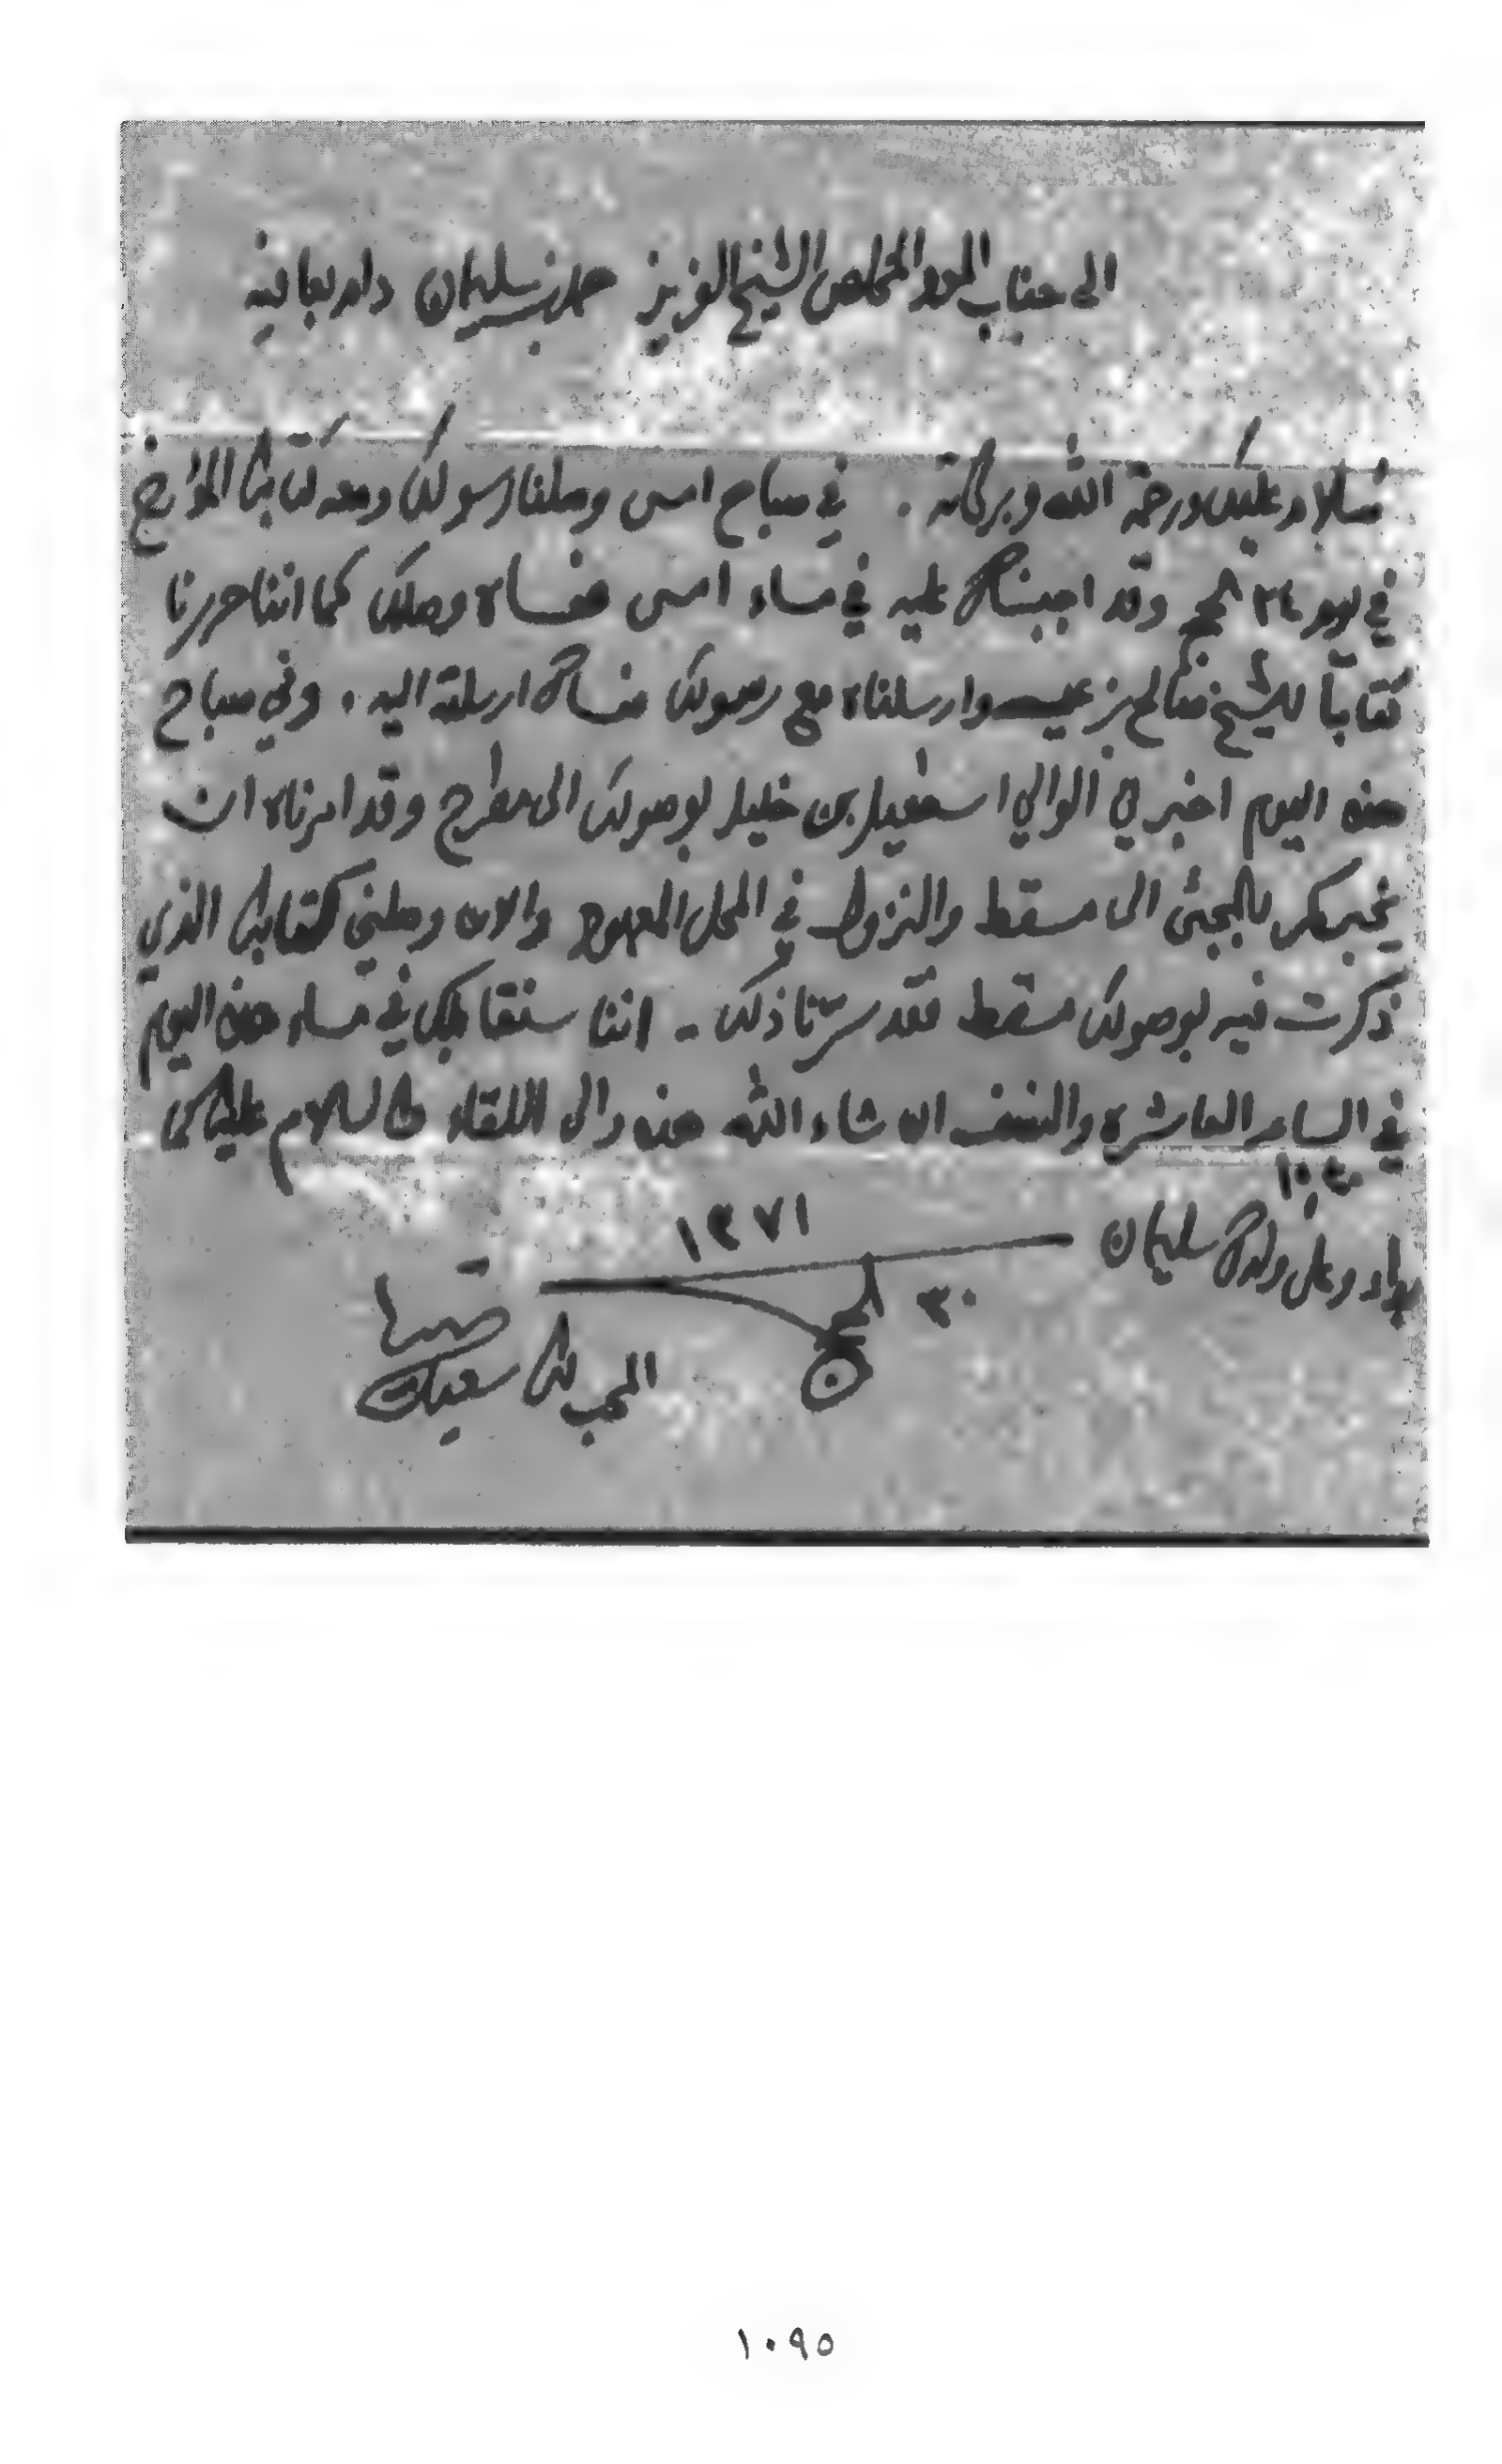 الى جناب المود المخلص الشيخ العزيز سليمان دام بعافيه
سلام عليك ورحمة الله وبركاته . في صباح امس وصلنا رسولك ومعه كتابك المؤرخ
في يوم ٢٤ الحج وقد اجبناك عليه في مساء امس فعساه وصلك كما اننا حررنا
كتاباً للشيخ صالح بن عيسى وارسلناه مع رسولك فعساك ارسلته اليه . وفي صباح
هذه اليوم اخبرني الوالي اسمعيل بن خليل بوصولك الى مطرح وقد امرناه ان
يخبركم بالمجئ الى مسقط والنزول في المحل المعهود والان وصلني كتابك الذي
ذكرت فيه بوصولك مسقط فقد سرّنا ذلك - اننا سنقابلك في مساء هذه اليوم
في الساعه العاشره والنصف ان شاء الله هذه والى اللقاء والسلام عليك
١٠،٣٠
وعلى ولدك سليمان
١٣٧١
٣٠ الحج
المحب لك سعيد
١٠٩٥